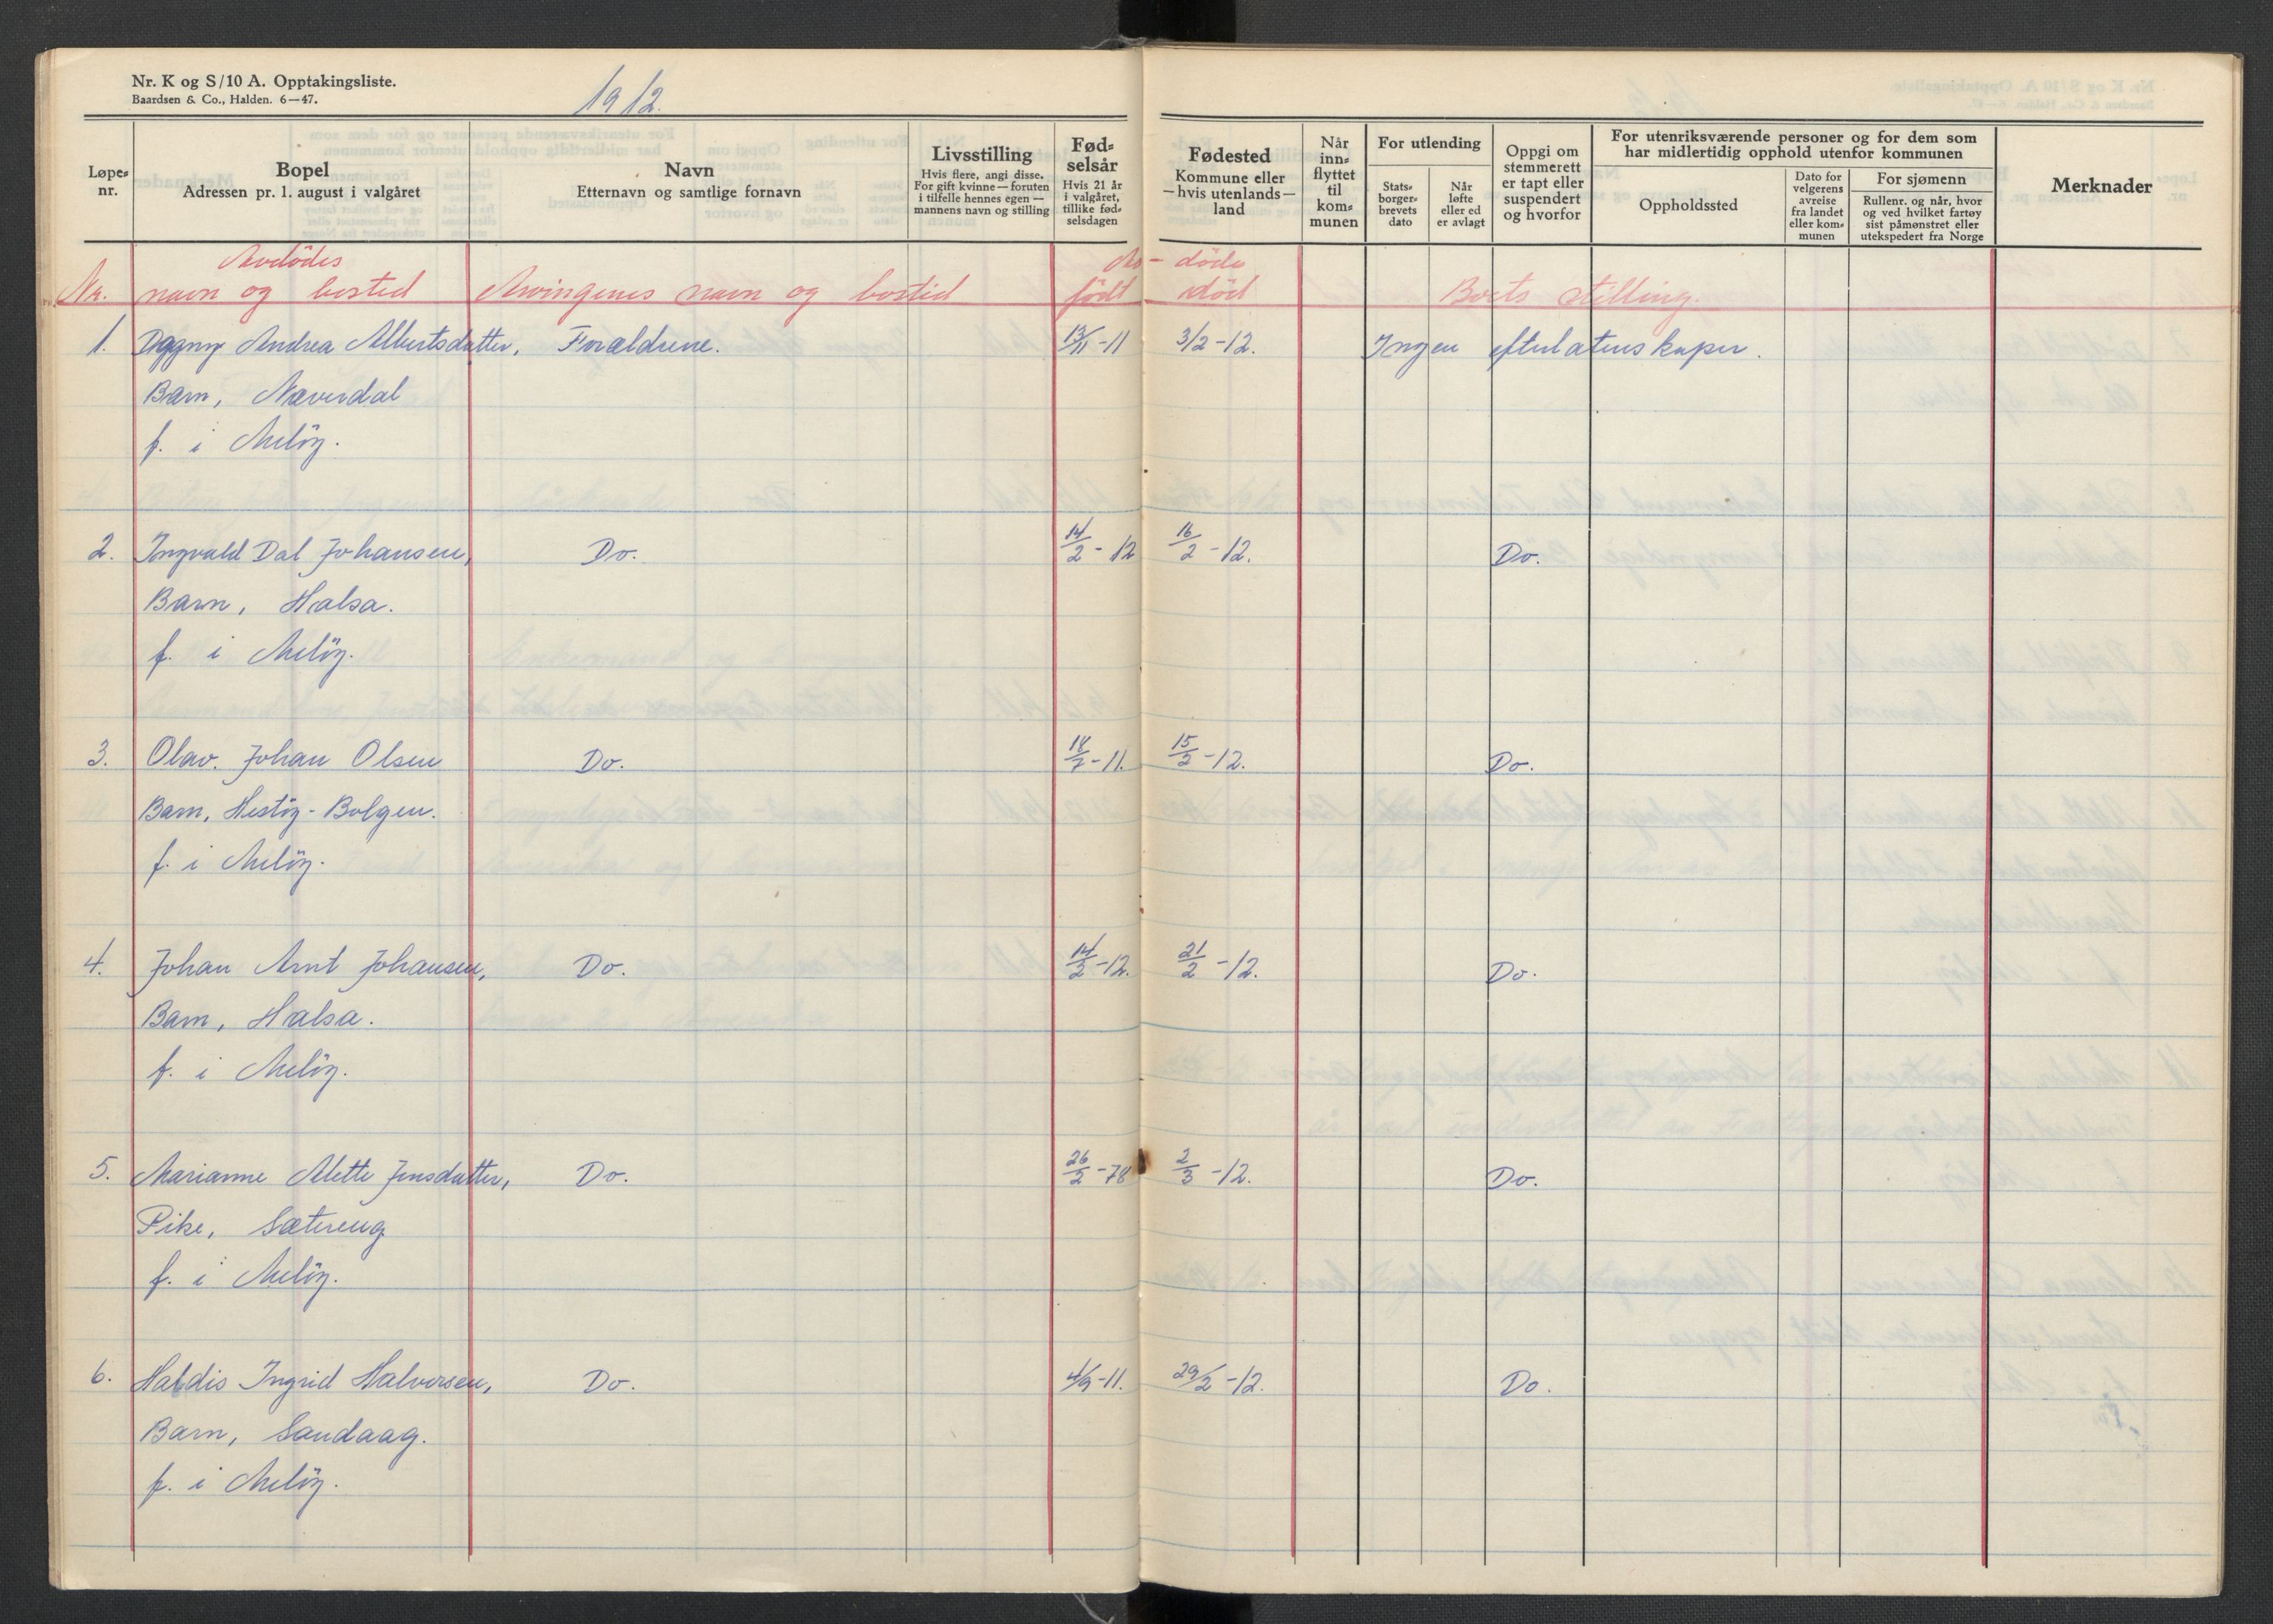 Nr. K og S/10 A. Opptakingsliste.
Baardsen & Co., Halden. 6—47.
1912.
Løpe-
nr.
Bopel
Adressen pr. 1. august i valgåret
Navn
Etternavn og samtlige fornavn
Livsstilling
Hvis flere, angi disse.
For gift kvinne — foruten
i tilfelle hennes egen —
mannens navn og stilling
Fød-
selsår
Hvis 21 år
i valgåret,
tillike fød-
selsdagen
Fødested
Kommune eller
— hvis utenlands —
land
Når
inn-
flyttet
til
kom-
munen
For utlending
Stats-
borger-
brevets
dato
Når
løfte
eller ed
er avlagt
Oppgi om
stemmerett
er tapt eller
suspendert
og hvorfor
For utenriksværende personer og for dem som
har midlertidig opphold utenfor kommunen
Oppholdssted
Dato for
velgerens
avreise
fra landet
eller kom-
munen
For sjømenn
Rullenr. og når, hvor
og ved hvilket fartøy
sist påmønstret eller
utekspedert fra Norge
Merknader
Avdödes Av- döde
Nr. navn og bosted Arvingenes navn og bostid født död Boets stilling.
1. Dagny Andrea Albertsdatter, Forældrene. 13/11 -11 3/2 -12. Ingen efterlatenskaper.
Barn, Næverdal
f. i Melöy.
2. Ingvald Dal Johansen, Do. 14/2 - 12 16/2 -12. Do.
Barn, Halsa.
f. i Melöy.
3. Olav. Johan Olsen Do. 18/7 -11. 15/2 -12. Do.
Barn, Hestöy - Bolgen.
f. i Melöy.
4. Johan Arnt Johansen, Do. 14/2 -12. 21/2 -12. Do.
Barn, Halsa.
f. i Melöy.
5. Marianne Alette Jensdatter, Do. 26/2 -78 2/3 -12. Do.
Pike, Sætereng
f. i Melöy.
6. Haldis Ingrid Halvorsen, Do. 4/9 -11. 29/2 -12. Do.
Barn, Sandaag.
f. i Melöy.